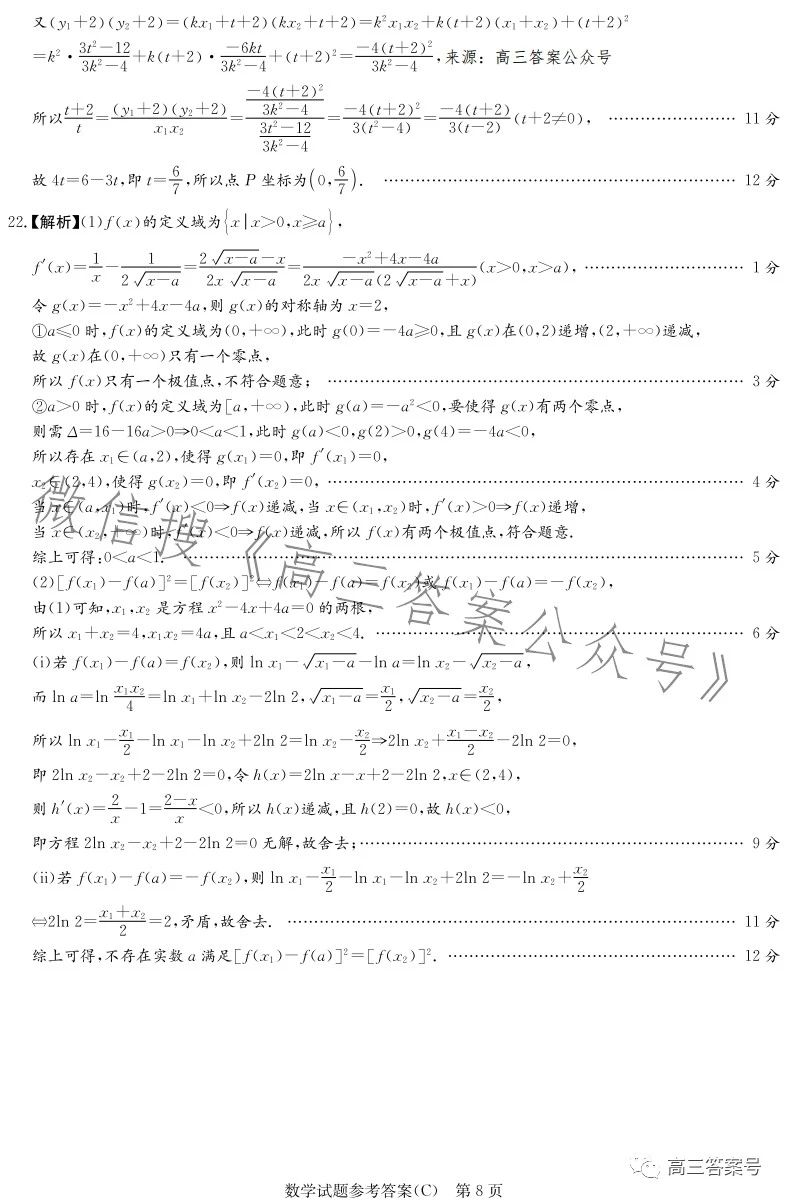 又(y₁+2)(y₂+2)=(kx₁+t+2)(kx₂+t+2)=k²x₁x₂+k(t+2)(x₁+x₂)+(t+2)²
=k²·\frac{3t²-12}{3k²-4}+k(t+2)·\frac{-6kt}{3k²-4}+(t+2)²=\frac{-4(t+2)²}{3k²-4},来源：高三答案公众号
所以\frac{t+2}{t}=\frac{(y₁+2)(y₂+2)}{x₁x₂}=\frac{\frac{-4(t+2)²}{3k²-4}}{\frac{3t²-12}{3k²-4}}=\frac{-4(t+2)²}{3(t²-4)}=\frac{-4(t+2)}{3(t-2)}(t+2≠0), …………………… 11分
故 4t=6-3t,即 t=\frac{6}{7},所以点 P 坐标为(0,\frac{6}{7}). …………………… 12分
22.【解析】(1)f(x)的定义域为{x|x>0,x⩾a},
f′(x)=\frac{1}{x}-\frac{1}{2\sqrt{x-a}}=\frac{2\sqrt{x-a}-x}{2x\sqrt{x-a}}=\frac{-x²+4x-4a}{2x\sqrt{x-a}(2\sqrt{x-a}+x)}(x>0,x>a), …………………… 1分
令 g(x)=-x²+4x-4a,则 g(x)的对称轴为 x=2,
①a⩽0 时,f(x)的定义域为(0,+∞),此时 g(0)=-4a⩾0,且 g(x)在(0,2)递增,(2,+∞)递减,
故 g(x)在(0,+∞)只有一个零点,
所以 f(x)只有一个极值点,不符合题意; …………………… 3分
②a>0 时,f(x)的定义域为[a,+∞),此时 g(a)=-a²<0,要使得 g(x)有两个零点,
则需 Δ=16-16a>0⇒0<a<1,此时 g(a)<0,g(2)>0,g(4)=-4a<0,
所以存在 x₁∈(a,2),使得 g(x₁)=0,即 f′(x₁)=0,
x₂∈(2,4),使得 g(x₂)=0,即 f′(x₂)=0, …………………… 4分
当 x∈(a,x₁)时,f′(x)<0⇒f(x)递减,当 x∈(x₁,x₂)时,f′(x)>0⇒f(x)递增,
当 x∈(x₂,+∞)时,f′(x)<0⇒f(x)递减,所以 f(x)有两个极值点,符合题意.
综上可得:0<a<1. …………………… 5分
(2)[f(x₁)-f(a)]²=[f(x₂)]²⇔f(x₁)-f(a)=f(x₂)或 f(x₁)-f(a)=-f(x₂),
由(1)可知,x₁,x₂ 是方程 x²-4x+4a=0 的两根,
所以 x₁+x₂=4,x₁x₂=4a,且 a<x₁<2<x₂<4. …………………… 6分
(ⅰ)若 f(x₁)-f(a)=f(x₂),则 ln x₁-\sqrt{x₁-a}-ln a=ln x₂-\sqrt{x₂-a},
而 ln a=ln \frac{x₁x₂}{4}=ln x₁+ln x₂-2ln 2,\sqrt{x₁-a}=\frac{x₁}{2},\sqrt{x₂-a}=\frac{x₂}{2},
所以 ln x₁-\frac{x₁}{2}-ln x₁-ln x₂+2ln 2=ln x₂-\frac{x₂}{2}⇒2ln x₂+\frac{x₁-x₂}{2}-2ln 2=0,
即 2ln x₂-x₂+2-2ln 2=0,令 h(x)=2ln x-x+2-2ln 2,x∈(2,4),
则 h′(x)=\frac{2}{x}-1=\frac{2-x}{x}<0,所以 h(x)递减,且 h(2)=0,故 h(x)<0,
即方程 2ln x₂-x₂+2-2ln 2=0 无解,故舍去; …………………… 9分
(ⅱ)若 f(x₁)-f(a)=-f(x₂),则 ln x₁-\frac{x₁}{2}-ln x₁-ln x₂+2ln 2=-ln x₂+\frac{x₂}{2}
⇔2ln 2=\frac{x₁+x₂}{2}=2,矛盾,故舍去. …………………… 11分
综上可得,不存在实数 a 满足[f(x₁)-f(a)]²=[f(x₂)]². …………………… 12分
微信搜《高三答案公众号》
高三答案号
数学试题参考答案(C) 第 8 页